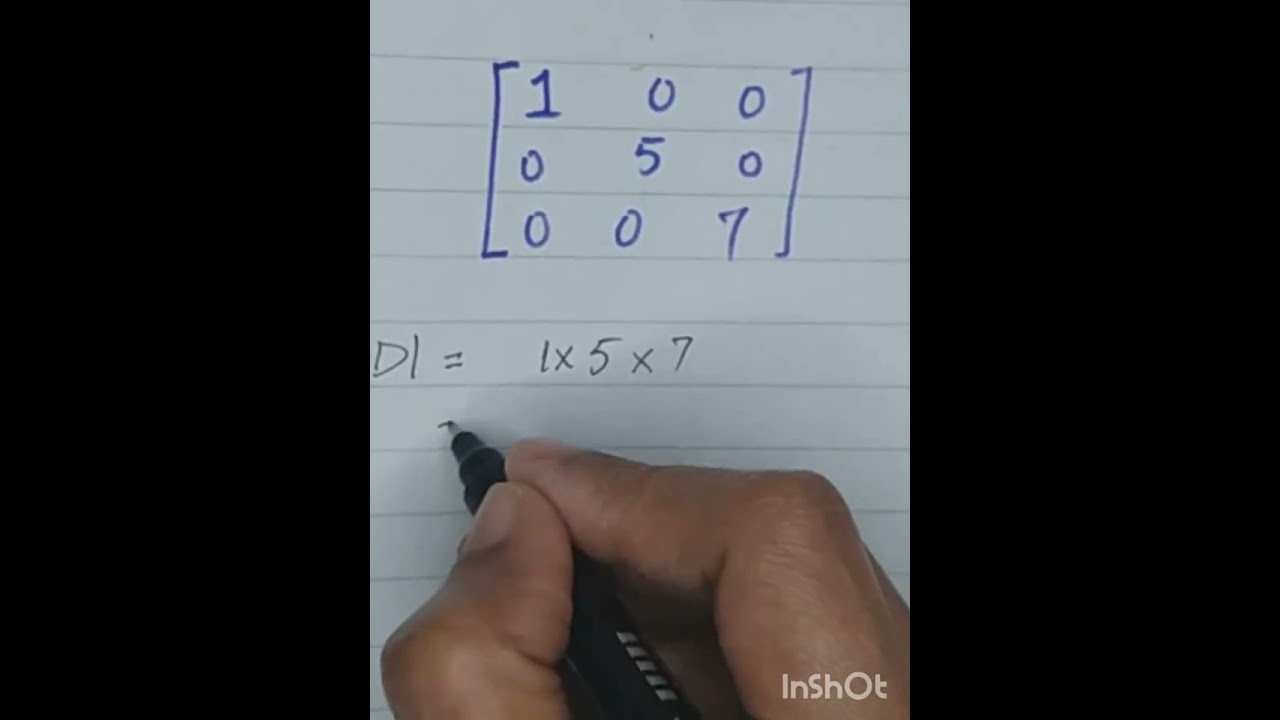 1 0 0
0 5 0
0 0 7
D| = 1 x 5 x 7
InShOt